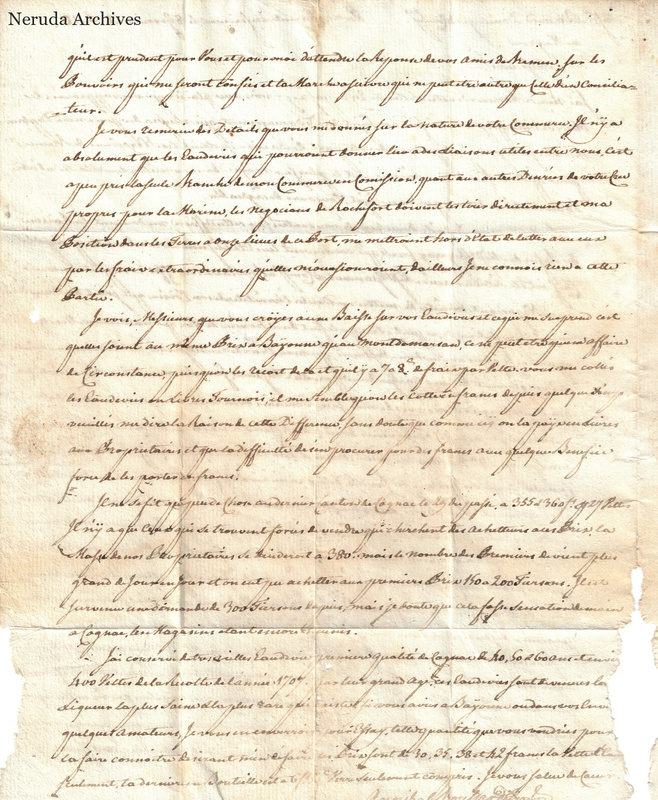 Neruda Archives
qu'il est prudent pour Vous et pour moi d'attendre la Reponse de vos Amis de sur les
Pouvoirs qui me seront confiés et la Marche a suivre qui ne peut etre autre que Celle d'un Concilia-
teur.
Je vous remercie des Details que vous me donnés sur la nature de votre Commerce. Il n'y a
absolument que les Eaudevies qui pourroient donner lieu a des liaisons utiles entre nous, C'est
a peu près la seule Branche de mon Commerce en Comission, quant aux autres Denrées de votre Cru
propres pour la Marine, les Negocians de Rochefort doivent les tirer directement et ma
Position dans les Terres a onze lieues de ce Port, me mettroient hors d'Etat de lutter avec eux
par les fraix extraordinaires qu'elles m'occasionneroient, d'ailleurs Je ne connois rien a cette
Partie.
Je vois, Messieurs, que vous croyés a une Baisse sur vos Eaudevies et ce qui me surprend c'est
qu'elles soient au même Prix a Bayonne qu'au Montdemarsan, ce ne peut etre qu'une affaire
de Circonstance, puisqu'on les de la et qu'il y a 7 a 8 de fraix par Velte. vous me cottés
les Eaudevies en Livres Tournois, il me semble qu'on les cottoit en francs depuis quelque tems
veuillés me dire la Raison de cette Difference, sans doute que comme icy on les paye en Livres
aux Proprietaires et que la difficulté de s'en procurer pour des francs avec quelque Benefice
force de les porter en francs.
Il ne se fit que peu de Chose au dernier Canton de Cognac le 29 du passé, a 355 et 360 f. 27 Veltes
Il n'y a que Ceux qui se trouvent forcés de vendre qui cherchent des acheteurs a ces Prix la
Masse de nos Proprietaires se tiendront a 380. mais le nombre des Premiers devient plus
grand de Jour en Jour et on eut pu achetter aux premiers Prix 150 a 200 Tierçons. Il est
survenu une demande de 300 Tierçons depuis, mais je doute que cela fasse sensation demain
a Cognac, les Magasins etant encore
J'ai conservé de très vieilles Eaudevies premiere qualité de Cognac de 40, 50 et 60 ans et environ
400 Veltes de la Recolte de l'année par leur grand Age, ces Eaudevies sont devenues la
Liqueur la plus Saine et la plus rare qui existe, si vous aviés a Bayonne ou dans vos Environs
quelques Amateurs, Je vous en enverrois pour Essay, telle quantité que vous voudriés pour
la faire connoitre desirant m'en defaire les Prix sont de 30, 35, 38 et 42 francs la Velte
seulement, la derniere en Bouteille est a 6 f. Verre seulement compris. Je vous salue de Coeur